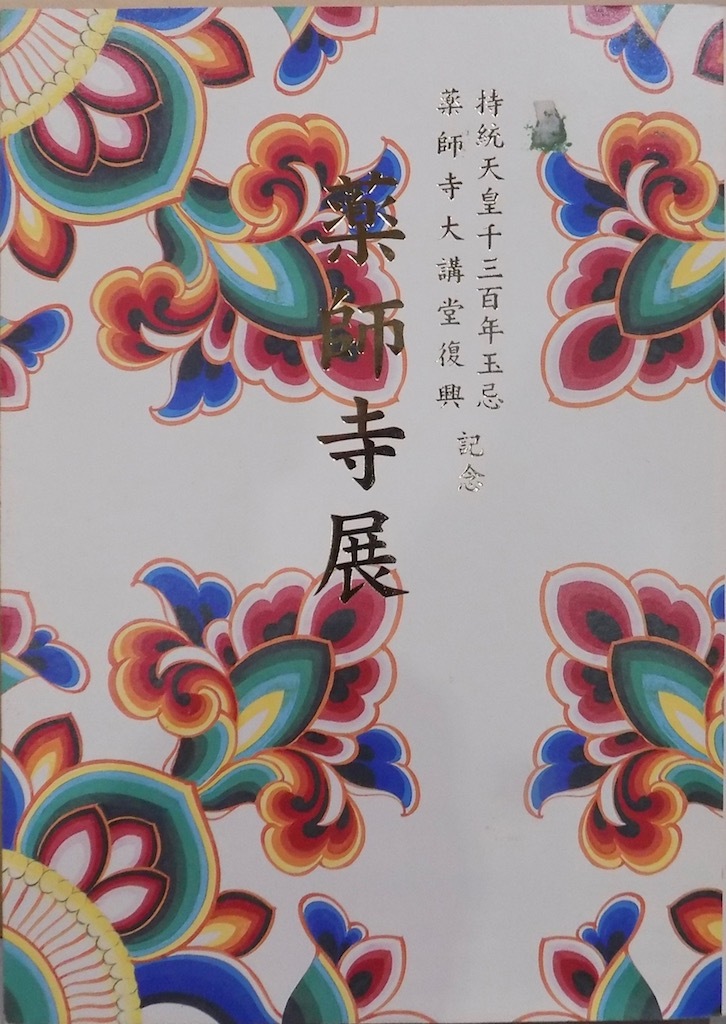 持統天皇千三百年玉忌
薬師寺大講堂復興
記念
薬師寺展